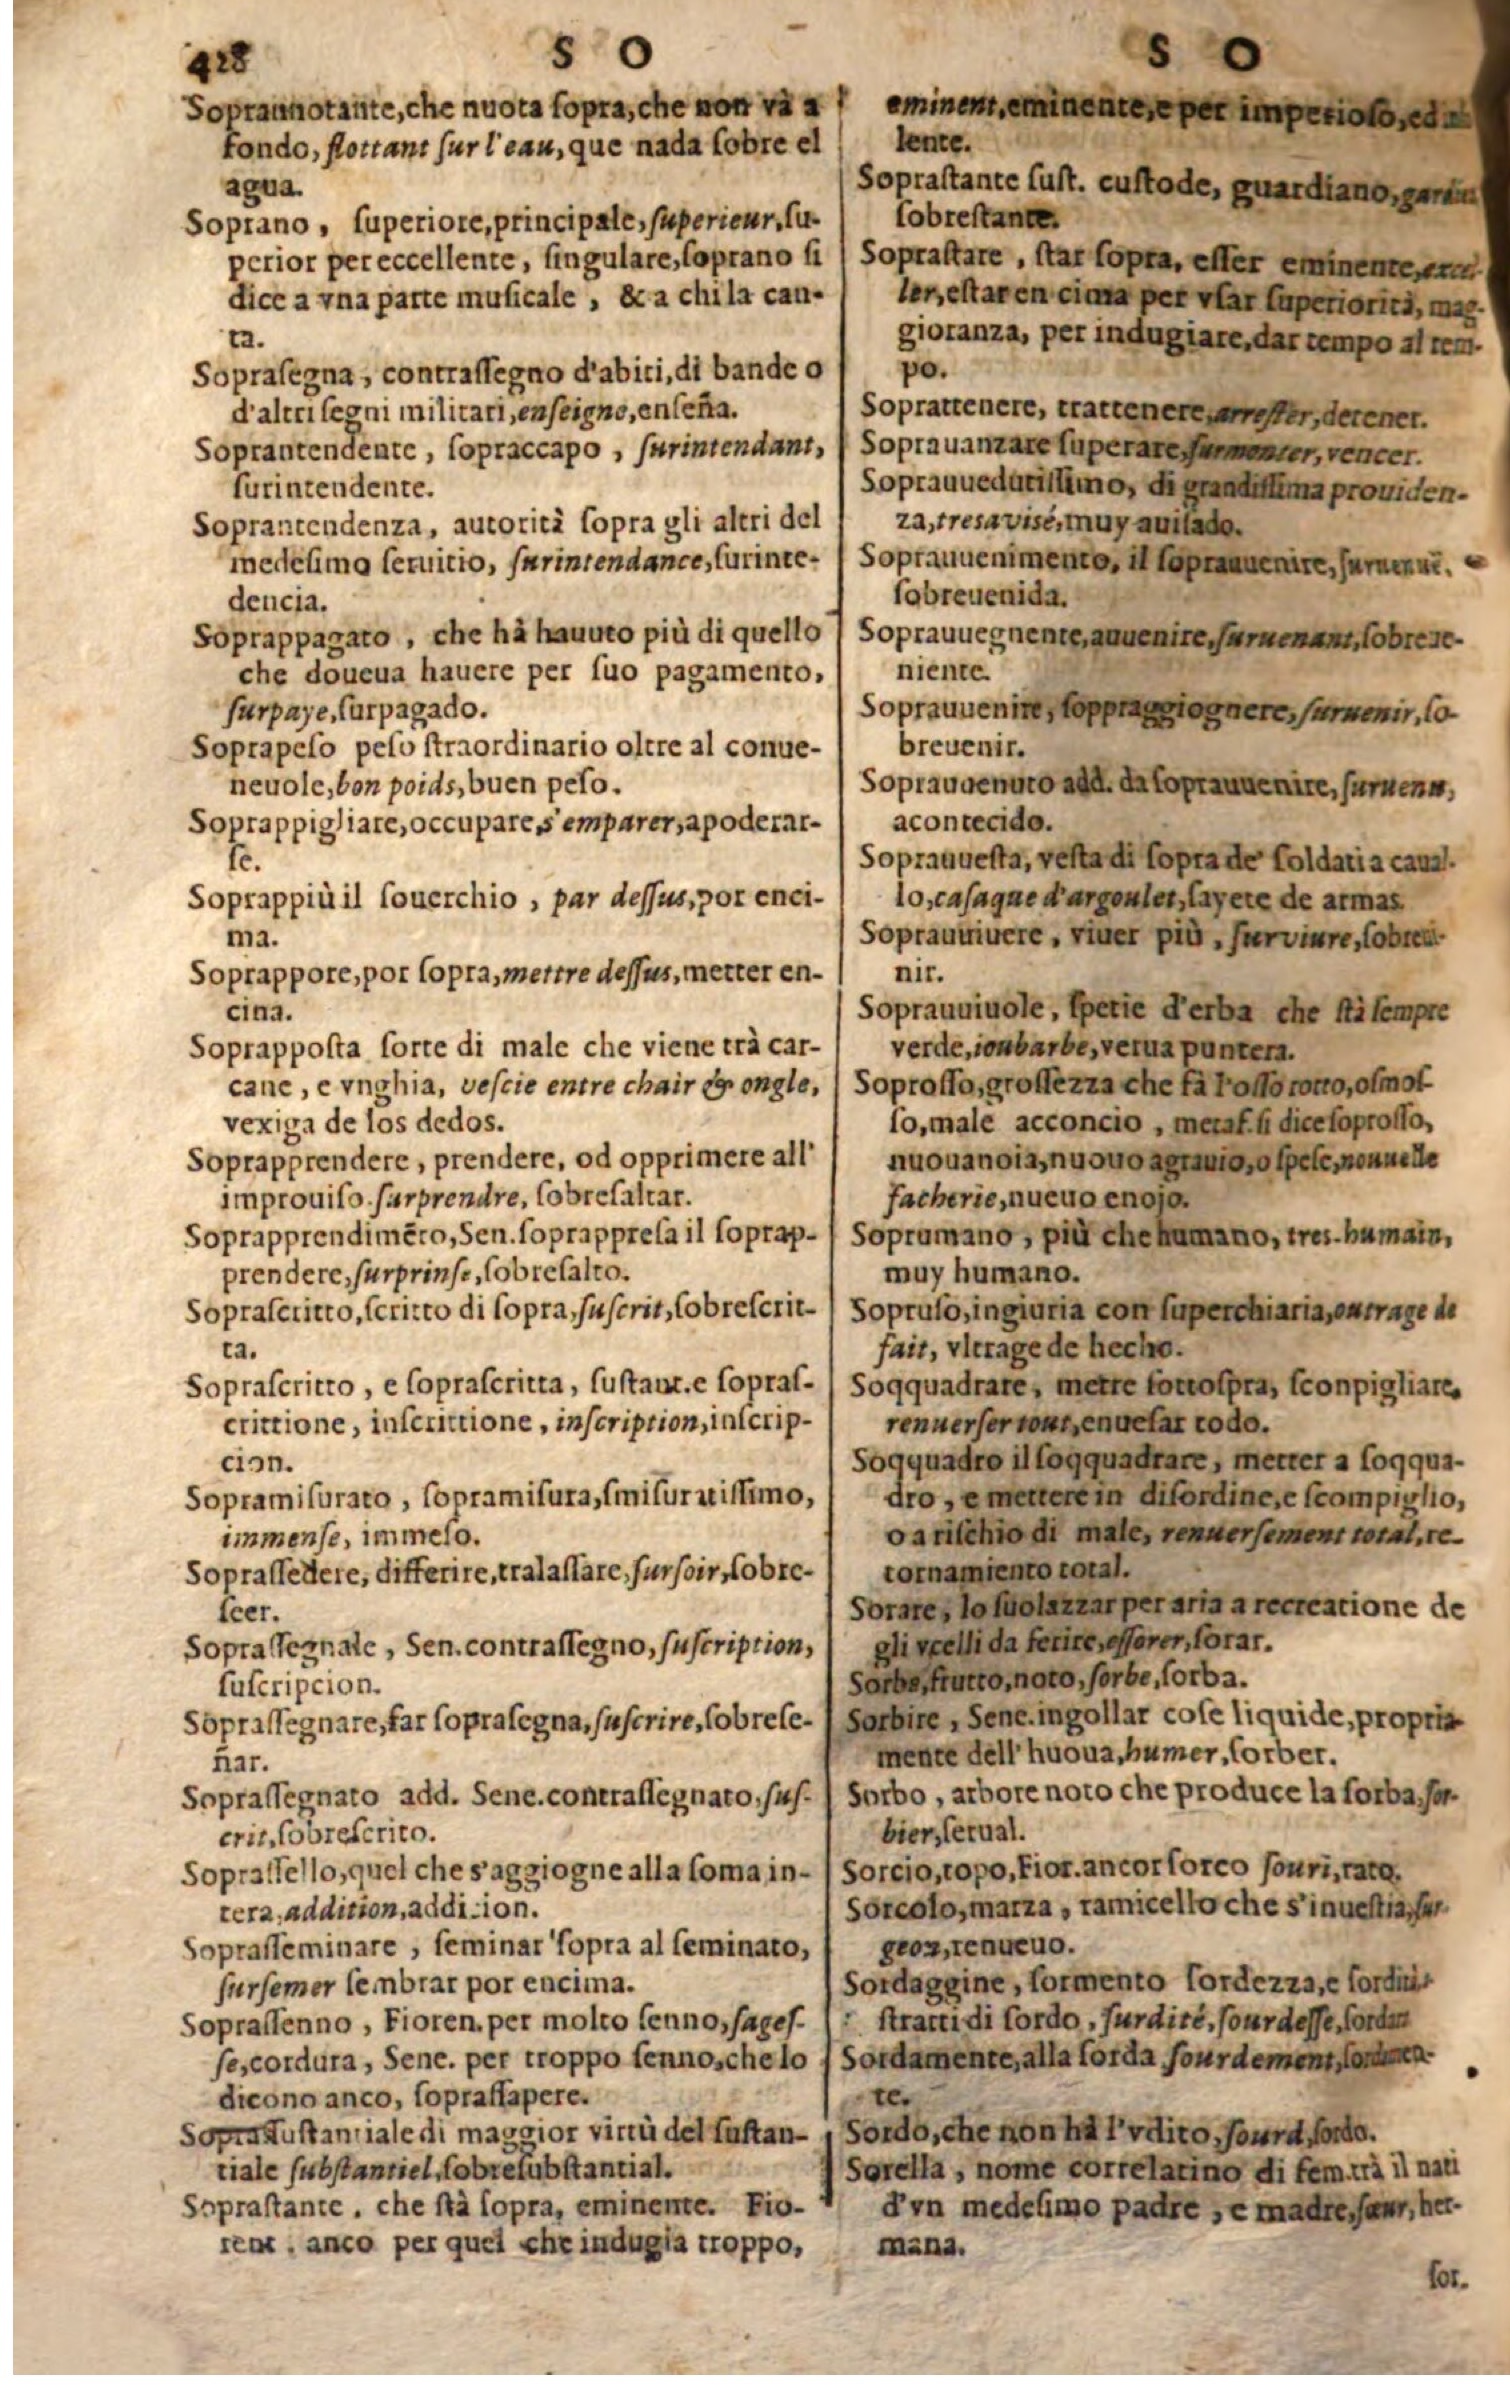 428 S O
Soprannotante, che nuota ſopra, che non và a
fondo, flottant ſur l'eau, que nada ſobre el
agua.
Soprano, ſuperiore, principale, ſuperieur, ſu-
perior per eccellente, ſingulare, ſoprano ſi
dice a vna parte muſicale, & a chi la can-
ta.
Sopraſegna, contraſſegno d'abiti, di bande o
d'altri ſegni militari, enſeigne, enſeña.
Soprantendente, ſopraccapo, ſurintendant,
ſurintendente.
Soprantendenza, autorità ſopra gli altri del
medeſimo ſeruitio, ſurintendance, ſurinte-
dencia.
Soprappagato, che hà hauuto più di quello
che doueua hauere per ſuo pagamento,
ſurpaye, ſurpagado.
Soprapeſo peſo ſtraordinario oltre al conue-
neuole, bon poids, buen peſo.
Soprappigliare, occupare, s'emparer, apoderar-
ſe.
Soprappiù il ſouerchio, par deſſus, por enci-
ma.
Soprappore, por ſopra, mettre deſſus, metter en-
cina.
Soprappoſta ſorte di male che viene trà car-
cane, e vnghia, veſcie entre chair & ongle,
vexiga de los dedos.
Soprapprendere, prendere, od opprimere all'
improuiſo ſurprendre, ſobreſaltar.
Soprapprendimẽto, Sen. ſoprappreſa il ſoprap-
prendere, ſurprinſe, ſobreſalto.
Sopraſcritto, ſcritto di ſopra, ſuſcrit, ſobreſcrit-
ta.
Sopraſcritto, e ſopraſcritta, ſuſtant. e ſopraſ-
crittione, inſcrittione, inſcription, inſcrip-
cion.
Sopramiſurato, ſopramiſura, ſmiſuratiſſimo,
immenſe, immeſo.
Sopraſſedere, differire, tralaſſare, ſurſoir, ſobre-
ſeer.
Sopraſſegnale, Sen. contraſſegno, ſuſcription,
ſuſcripcion.
Sopraſſegnare, far ſopraſegna, ſuſcrire, ſobreſe-
ñar.
Sopraſſegnato add. Sene. contraſſegnato, ſuſ-
crit, ſobreſcrito.
Sopraſſello, quel che s'aggiogne alla ſoma in-
tera, addition, addicion.
Sopraſſeminare, ſeminar ſopra al ſeminato,
ſurſemer ſembrar por encima.
Sopraſſenno, Fioren. per molto ſenno, ſageſ-
ſe, cordura, Sene. per troppo ſenno, che lo
dicono anco, ſopraſſapere.
Sopraſuſtantiale di maggior virtù del ſuſtan-
tiale ſubſtantiel, ſobreſubſtantial.
Sopraſtante. che ſtà ſopra, eminente. Fio-
rent. anco per quel che indugia troppo,
S O
eminent, eminente, e per imperioſo, ed
lente.
Sopraſtante ſuſt. cuſtode, guardiano,
ſobreſtante.
Sopraſtare, ſtar ſopra, eſſer eminente, exce-
ler, eſtar en cima per vſar ſuperiorità, mag-
gioranza, per indugiare, dar tempo al tem-
po.
Soprattenere, trattenere, arreſter, detener.
Soprauanzare ſuperare, ſurmonter, vencer.
Soprauueduriſſimo, di grandiſſima prouiden-
za, tres aviſé, muy auiſado.
Soprauuenimento, il ſoprauuenire,
ſobreuenida.
Soprauuegnente, auuenire, ſuruenant, ſobreue-
niente.
Soprauuenire, ſoppraggiognere, ſuruenir, ſo-
breuenir.
Soprauuenuto add. da ſoprauuenire, ſuruenu,
acontecido.
Soprauueſta, veſta di ſopra de' ſoldati a caual-
lo, caſaque d'argoulet, ſayete de armas.
Soprauuiuere, viuer più, ſurviure, ſobreui-
nir.
Soprauuiuole, ſpetie d'erba che ſtà ſempre
verde, ioubarbe, verua puntera.
Soproſſo, groſſezza che fà l'oſſo rotto, oſmoſ-
ſo, male acconcio, metaf. ſi dice ſoproſſo,
nuoua noia, nuouo agrauio, o ſpeſe, nouuelle
facherie, nueuo enojo.
Soprumano, più che humano, tres-humain,
muy humano.
Sopruſo, ingiuria con ſuperchiaria, outrage de
fait, vltrage de hecho.
Soqquadrare, metre ſottoſpra, ſconpigliare,
renuerſer tout, enueſar todo.
Soqquadro il ſoqquadrare, metter a ſoqqua-
dro, e mettere in diſordine, e ſcompiglio,
o a riſchio di male, renuerſement total, re-
tornamiento total.
Sorare, lo ſuolazzar per aria a recreatione de
gli vcelli da ferire, eſſorer, ſorar.
Sorba, frutto, noto, ſorbe, ſorba.
Sorbire, Sene. ingollar coſe liquide, propria-
mente dell'huoua, humer, ſorber.
Sorbo, arbore noto che produce la ſorba, ſor-
bier, ſerual.
Sorcio, topo, Fior. ancor ſorco ſouri, rato.
Sorcolo, marza, ramicello che s'inueſtia, ſur-
geon, renueuo.
Sordaggine, ſormento ſordezza, e ſordità
ſtratti di ſordo, ſurdité, ſourdeſſe,
Sordamente, alla ſorda ſourdement, ſordamen-
te.
Sordo, che non hà l'vdito, ſourd, ſordo.
Sorella, nome correlatino di fem. trà il nati
d'vn medeſimo padre, e madre, ſœur, her-
mana.
ſor-